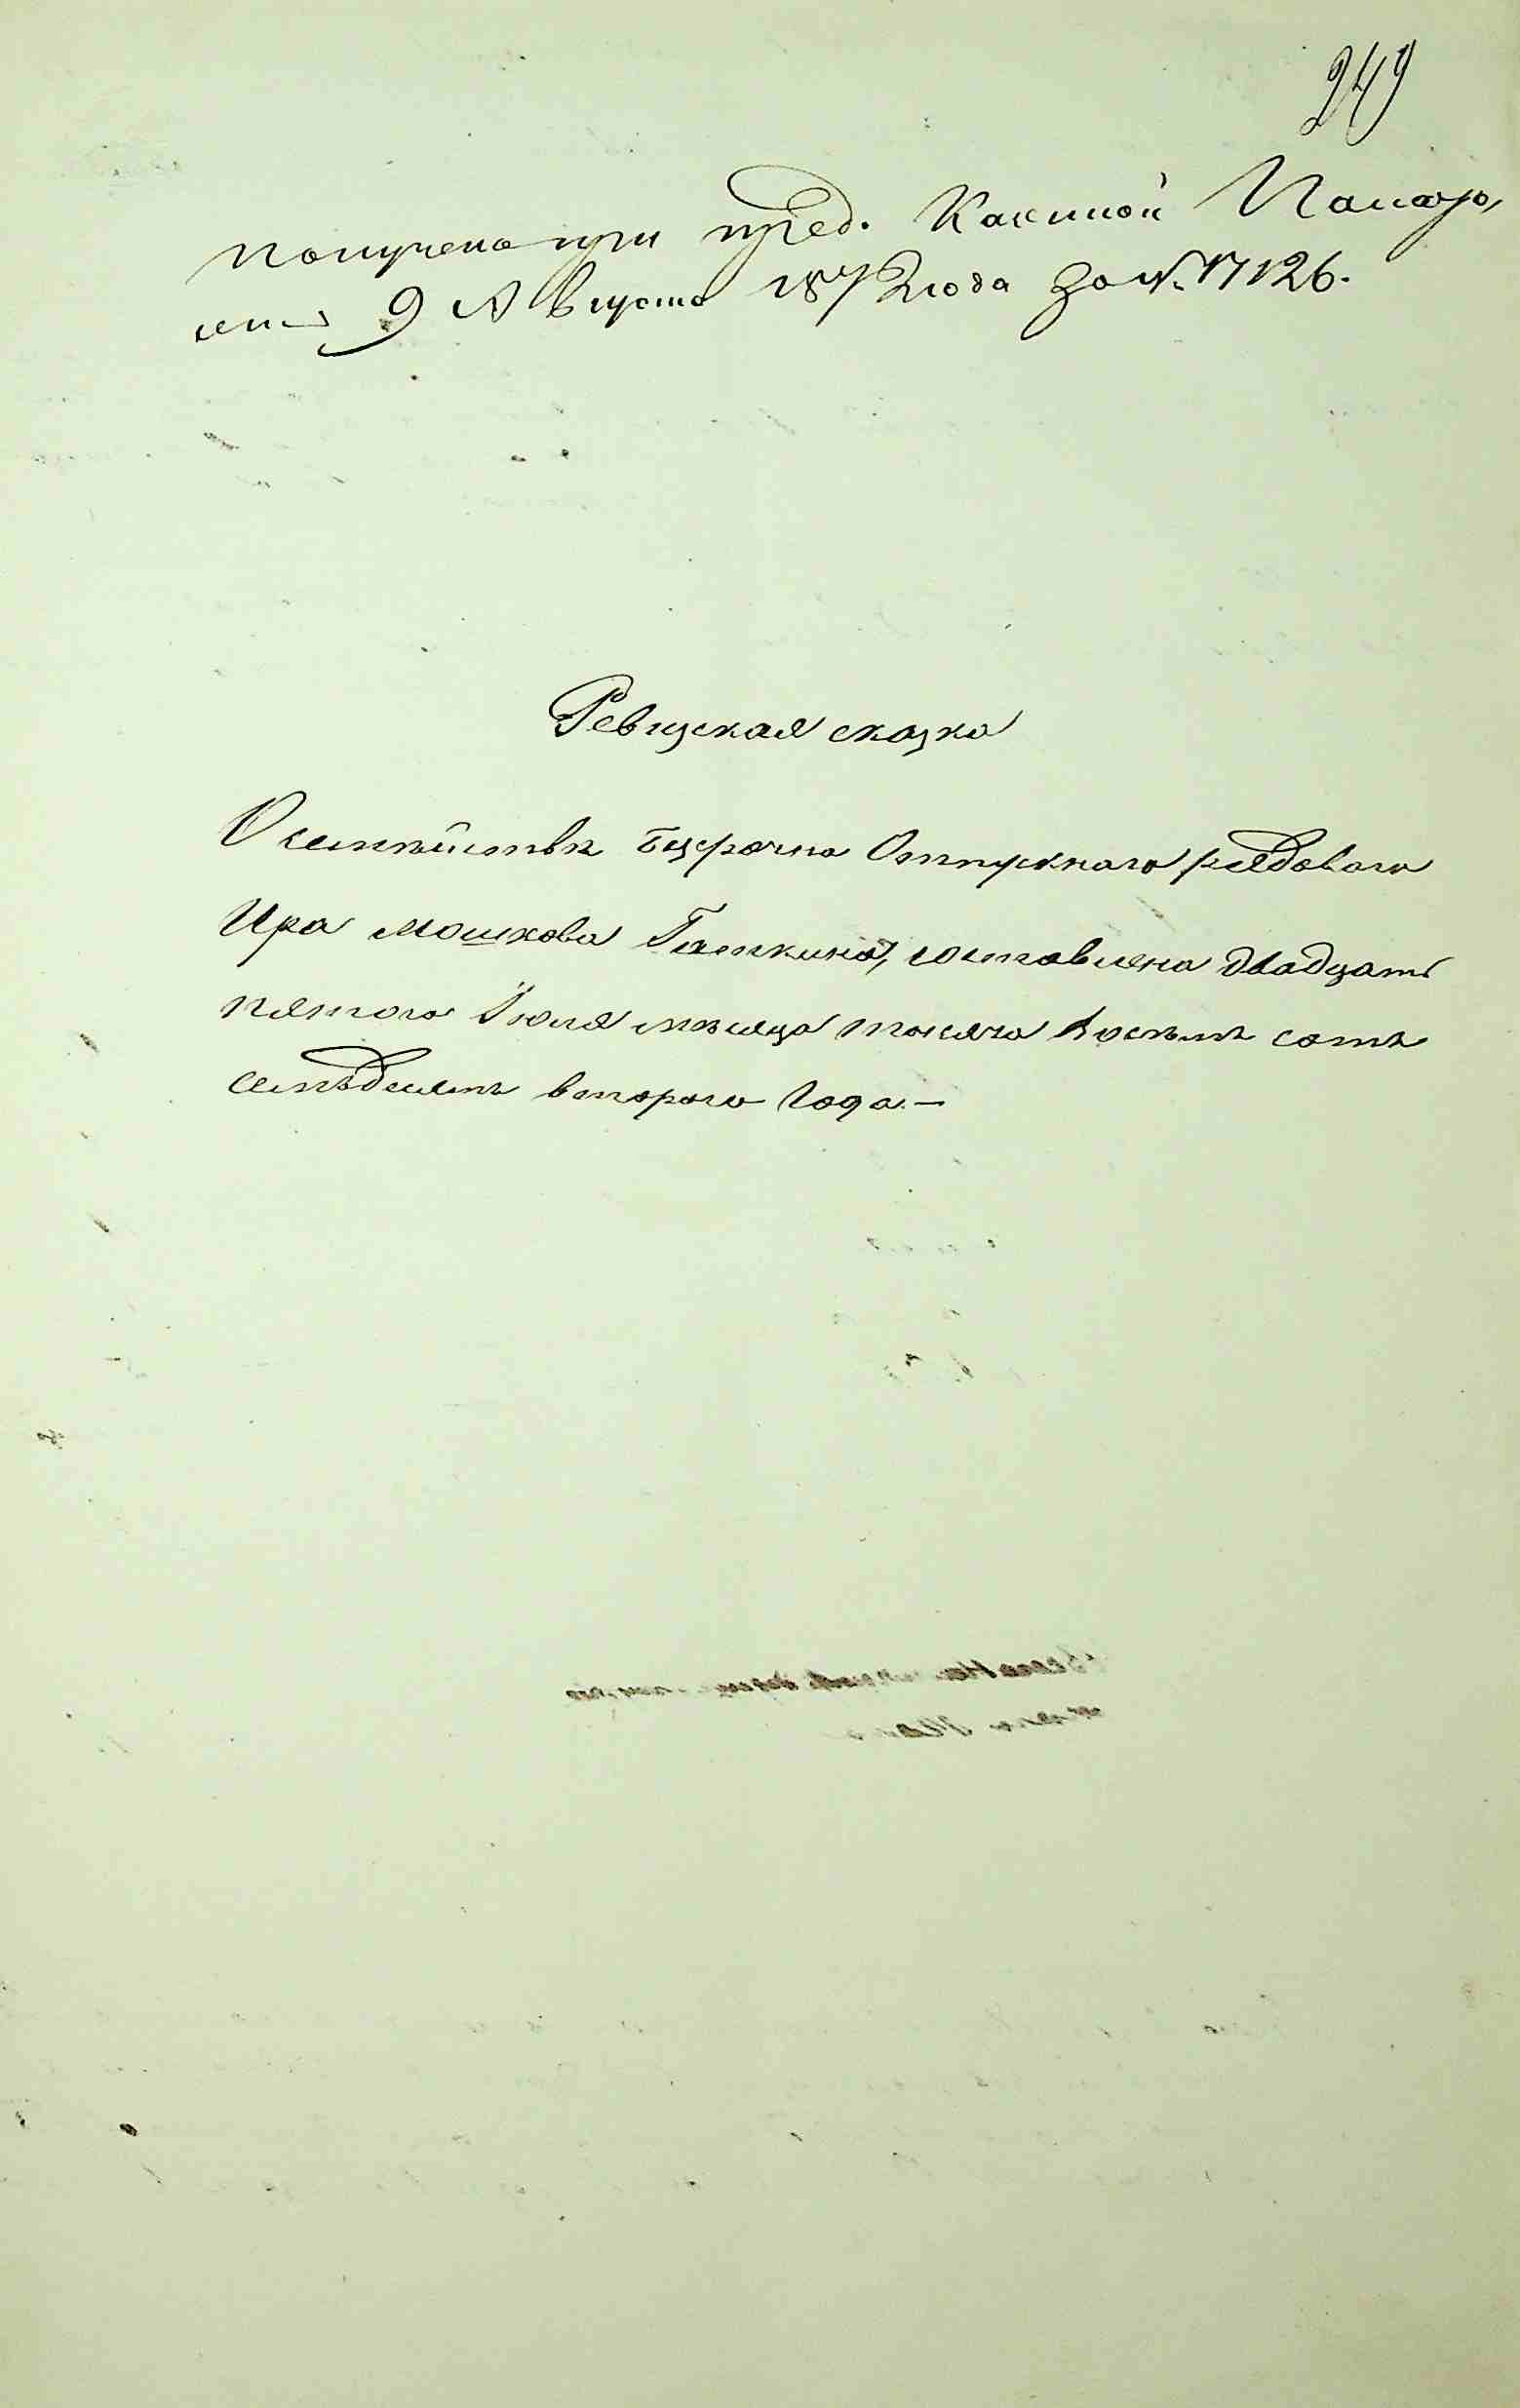 249
Получена при пред. Казенной Палаты,
отъ 9 Августа 1872 года за №. 17126.
Ревизская сказка
О семействѣ безсрочно Отпускнаго рядоваго
Ира Мошкова Гаткина, составлена двадцать
пятого Іюля мѣсяца тысяча восемь сотъ
семьдесятъ второго года.—